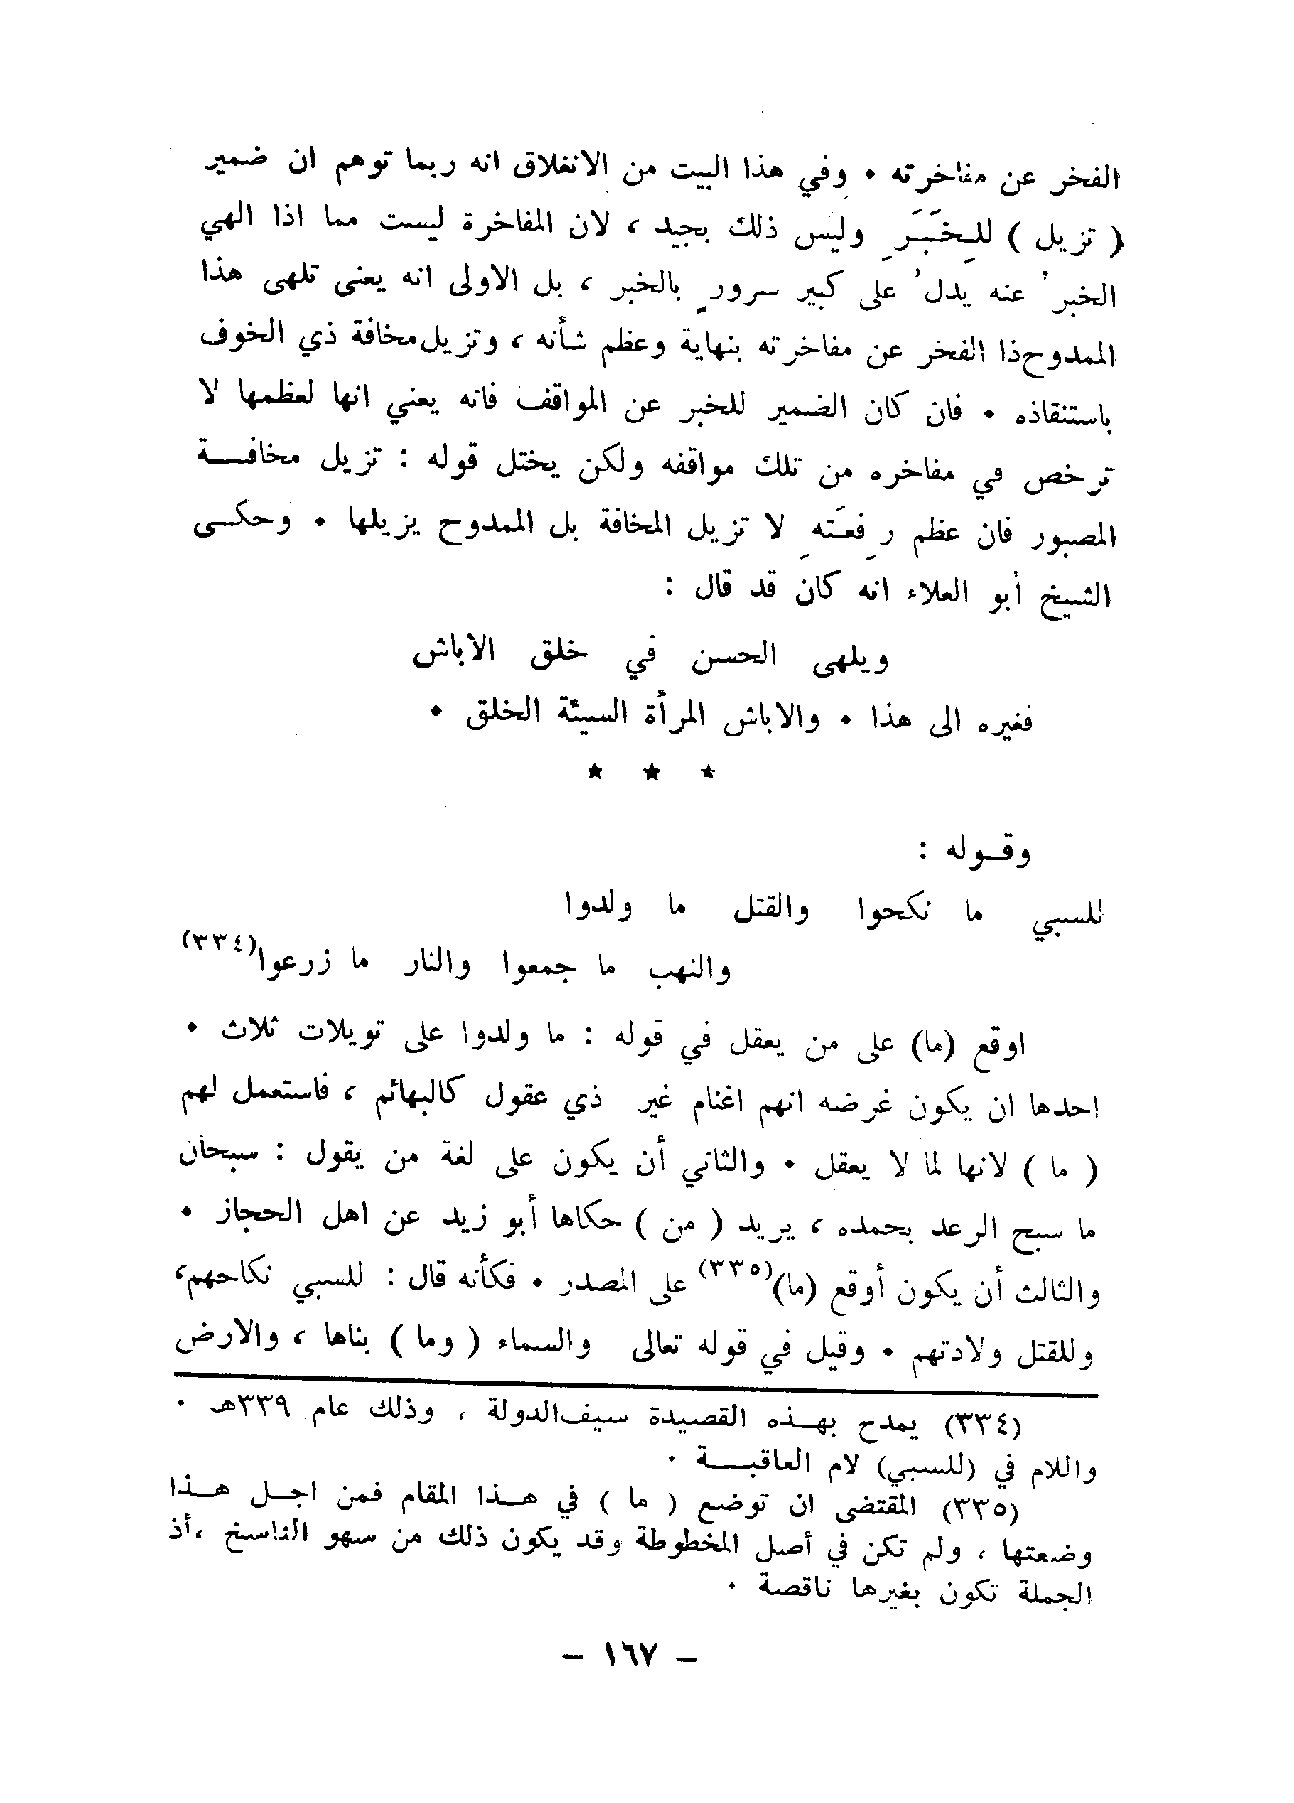 الفخر عن مفاخرته • وفي هذا البيت من الانغلاق انه ربما توهم ان ضمير
( تزيل ) للِخَبَرِ وليس ذلك بجيد ، لان المفاخرة ليست مما اذا الهي
الخبرُ عنه يدلُ على كبير سرورٍ بالخبر ، بل الاولى انه يعني تلهى هذا
الممدوح ذا الفخر عن مفاخرته بنهاية وعظم شأنه ، وتزيل مخافة ذي الخوف
باستنقاذه • فان كان الضمير للخبر عن المواقف فانه يعني انها لعظمها لا
ترخص في مفاخره من تلك مواقفه ولكن يختل قوله : تزيل مخافـــة
المصبور فان عظم رِفعَتهِ لا تزيل المخافة بل الممدوح يزيلها • وحكـى
الشيخ أبو العلاء انه كان قد قال :
ويلهى الحسن في خلق الاباش
فغيره الى هذا • والاباش المرأة السيئة الخلق •
★ ★ ★
وقـوله :
للسبي ما نكحوا والقتل ما ولدوا
والنهب ما جمعوا والنار ما زرعوا(٣٣٤)
اوقع (ما) على من يعقل في قوله : ما ولدوا على تويلات ثلاث •
احدها ان يكون غرضه انهم اغنام غير ذي عقول كالبهائم ، فاستعمل لهم
( ما ) لانها لما لا يعقل • والثاني أن يكون على لغة من يقول : سبحان
ما سبح الرعد بحمده ، يريد ( من ) حكاها أبو زيد عن اهل الحجاز •
والثالث أن يكون أوقع (ما)(٣٣٥) على المصدر • فكأنه قال : للسبي نكاحهم،
وللقتل ولادتهم • وقيل في قوله تعالى والسماء ( وما ) بناها ، والارض
(٣٣٤) يمدح بهـذه القصيدة سيف الدولة ، وذلك عام ٣٣٩هـ •
واللام في (للسبي) لام العاقبـــة •
(٣٣٥) المقتضى ان توضع ( ما ) في هــذا المقام فمن اجــل هــذا
وضعتها ، ولم تكن في أصل المخطوطة وقد يكون ذلك من سهو الناسخ ،أذ
الجملة تكون بغيرها ناقصة •
– ١٦٧ –